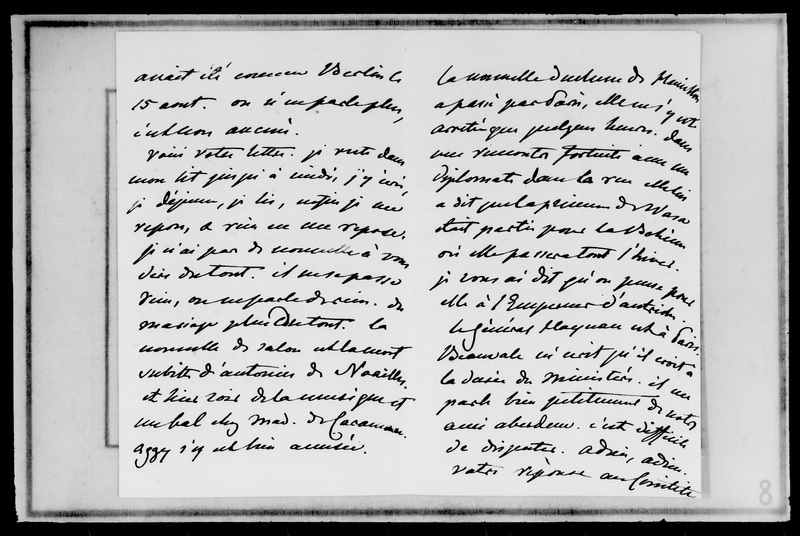 avait été comme Berlin le
15 aout. on n'en parle plus,
intérêt aucun.
voici votre lettre. je reste dans
mon lit jusqu'à midi, j'y écris,
je déjeune, je lis, enfin je me
repose, & rien ne me repose.
je n'ai pas de nouvelle à vous
dire du tout. il ne se passe
rien, on ne parle de rien. du
mariage plus du tout. la
nouvelle de salon est la mort
subite d'antonin de Noailles.
et hier soir de la musique et
un bal chez mad. de
aggy s'y est bien amusée.
la nouvelle Duchesse de
a passé par Paris, elle ne s'y est
arrêtée que quelques heures. dans
une rencontre fortuite avec un
Diplomate dans la rue elle lui
a dit que la princesse de Wasa
était partie pour la Bohème
où elle passera tout l'hiver.
je vous ai dit qu'on pense pour
elle à l'Empereur d'autriche.
le général Haynau est à Paris.
Beauvale m'écrit qu'il croit à
la durée du ministère. il me
parle bien petitement de notre
ami aberdeen. c'est difficile
de disputer. adieu, adieu.
votre réponse au
8